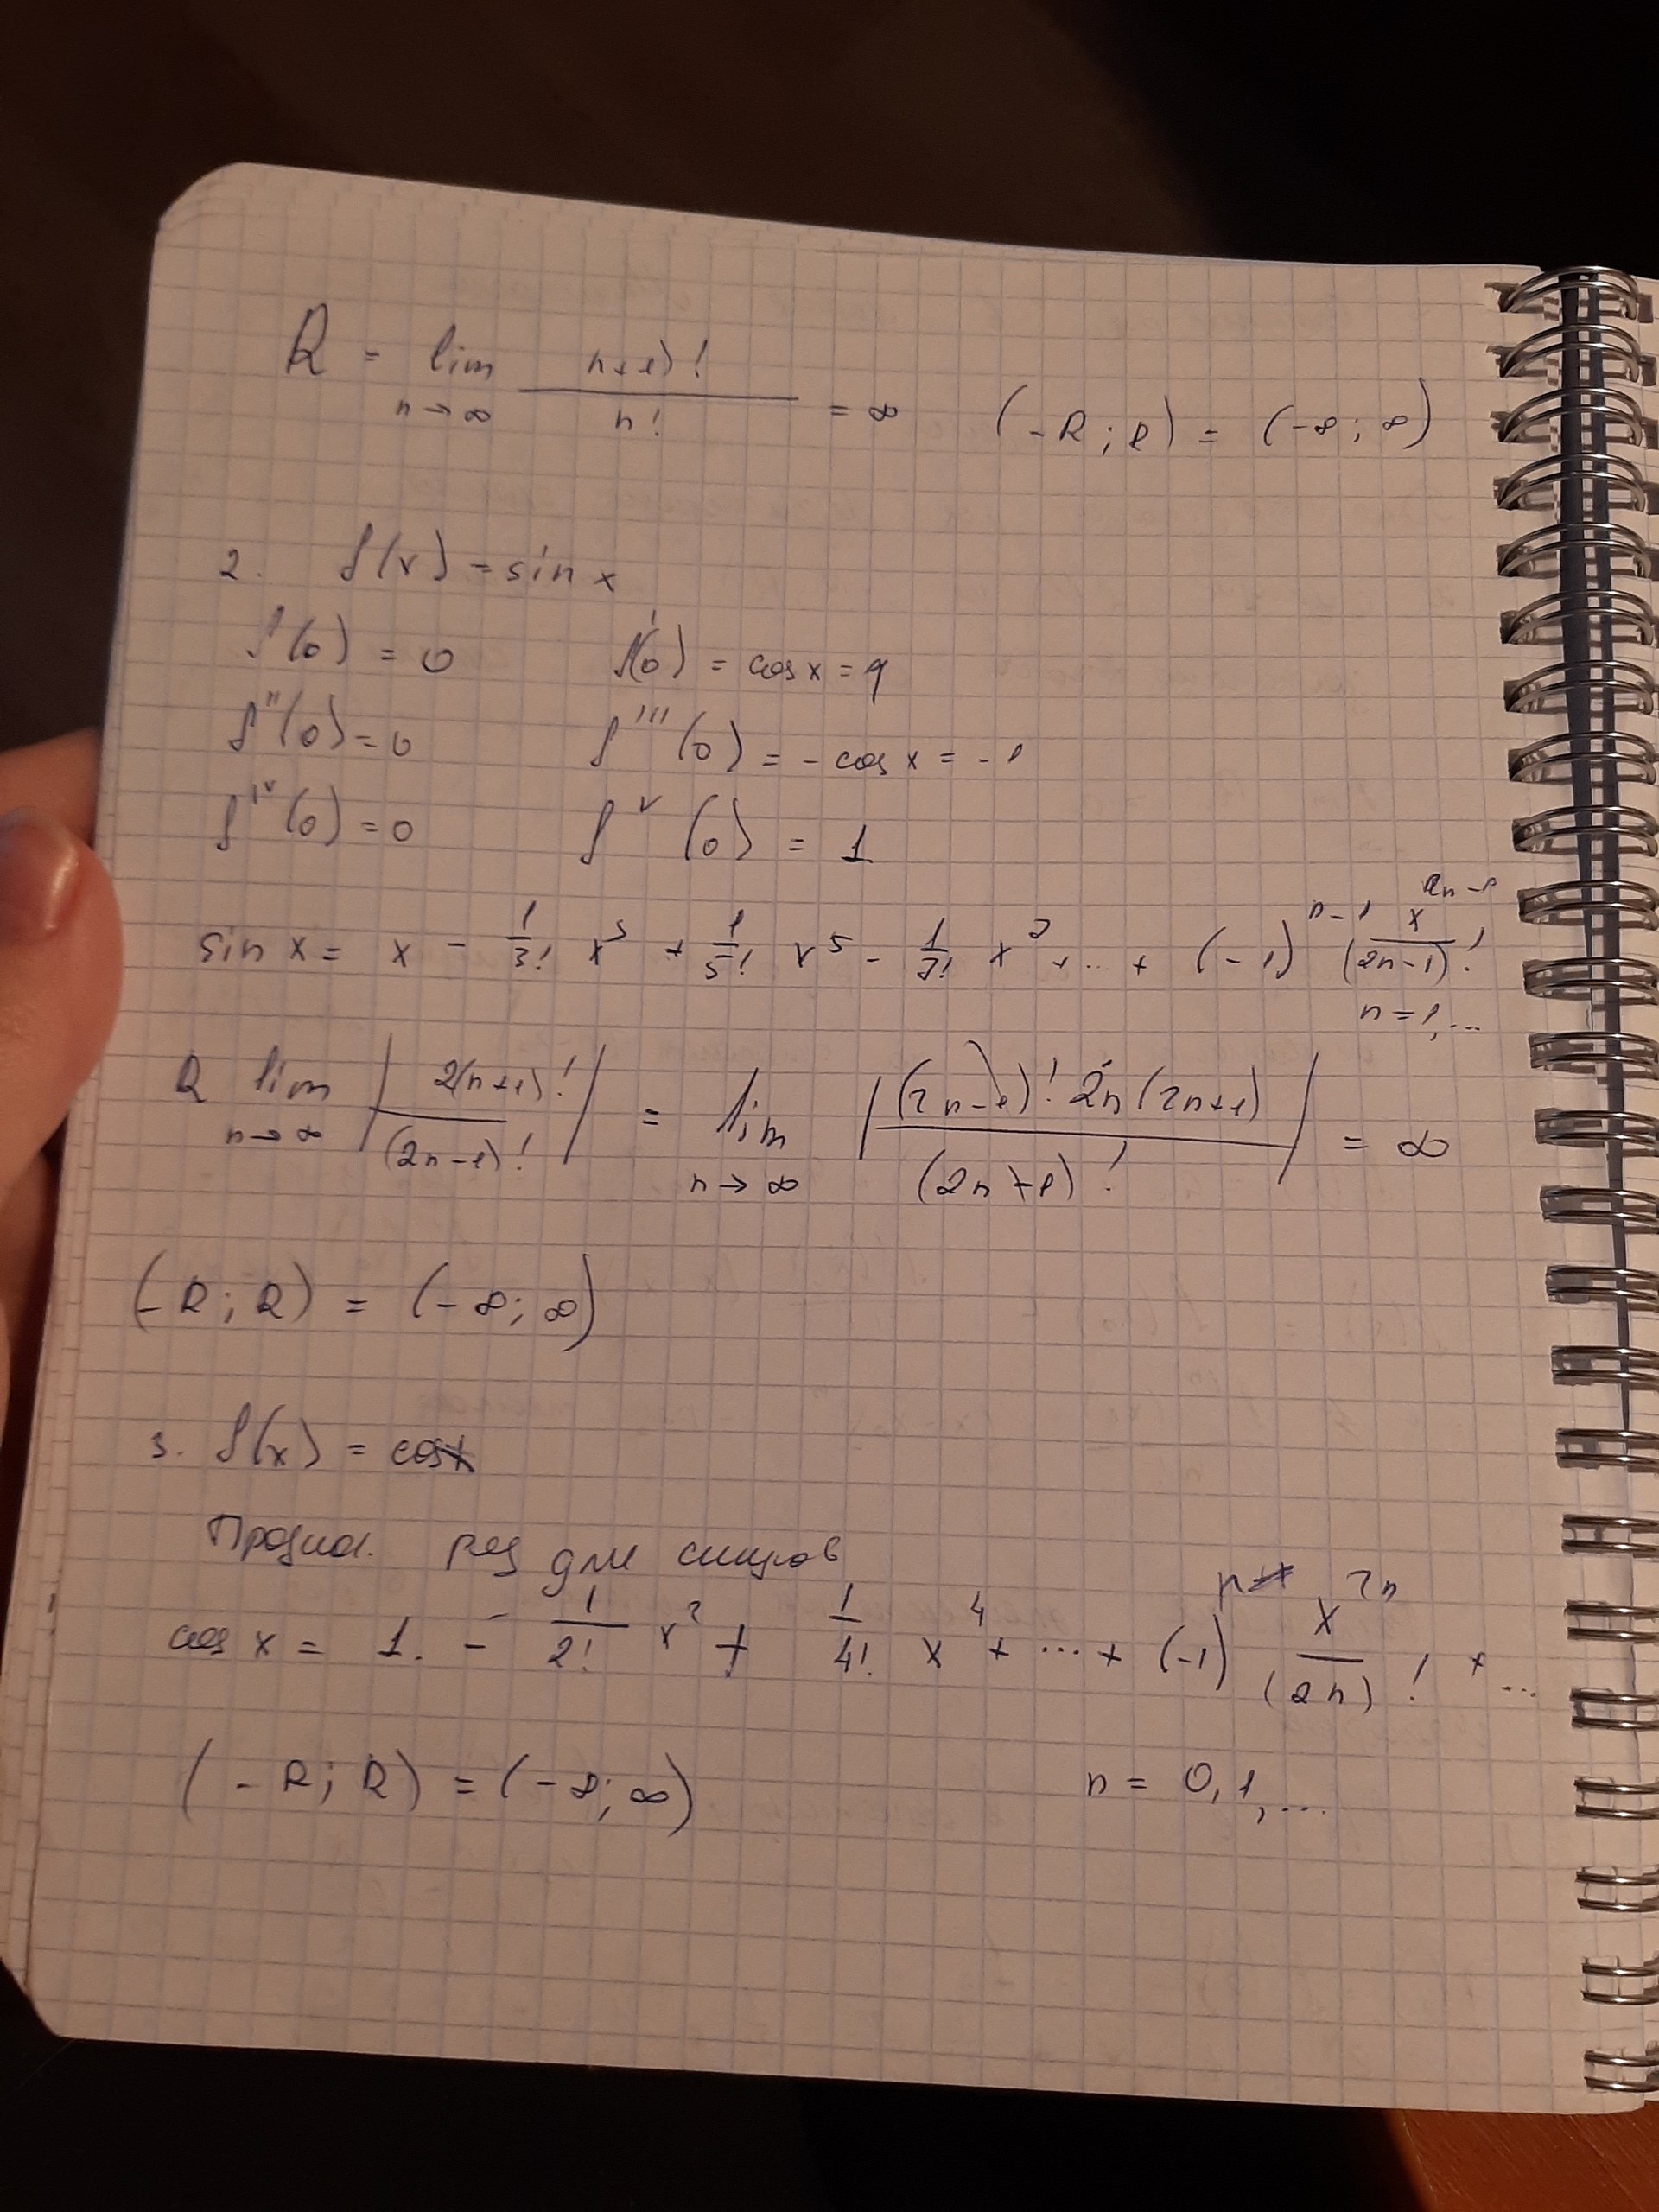 R = lim n→∞ n+1)! / n! = ∞ (-R; R) = (-∞; ∞)
2. f(x) = sin x
f(0) = 0 f'(0) = cos x = 1
f''(0) = 0 f'''(0) = - cos x = -1
f^IV(0) = 0 f^V(0) = 1
sin x = x - 1/3! x^3 + 1/5! x^5 - 1/7! x^7 + ... + (-1)^(n-1) x^(2n-1) / (2n-1)!
n = 1, ...
R lim n→∞ | 2(n+1)! / (2n-1)! | = lim n→∞ | (2n-1)! 2n (2n+1) / (2n+1)! | = ∞
(-R; R) = (-∞; ∞)
3. f(x) = cos x
ряд для синусов
cos x = 1. - 1/2! x^2 + 1/4! x^4 + ... + (-1)^n x^(2n) / (2n)! + ...
(-R; R) = (-∞; ∞) n = 0, 1, ...